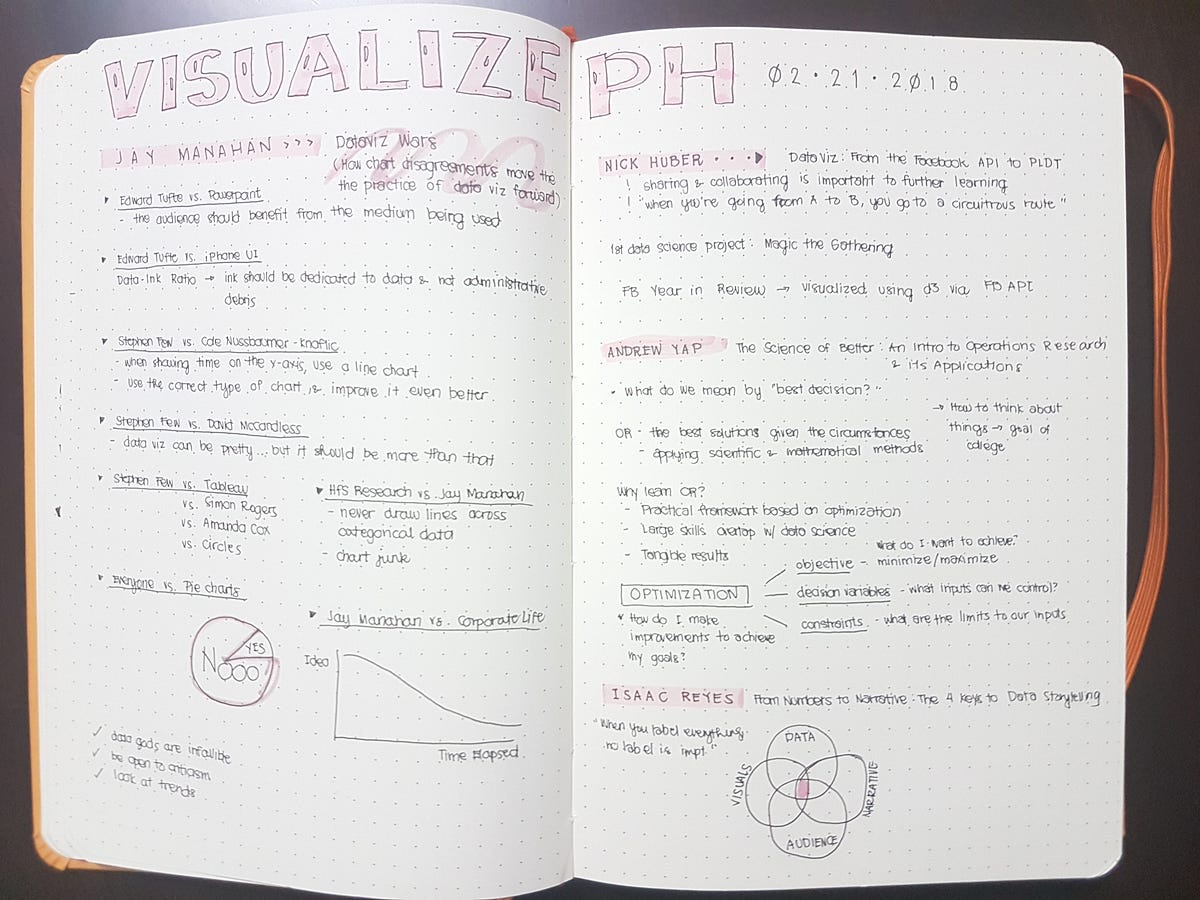 VISUALIZE PH
02 · 21 · 2018
JAY MANAHAN >>>
Dataviz Wars
(How chart disagreements move the
the practice of data viz forward)
▾ Edward Tufte vs. Powerpoint
- the audience should benefit from the medium being used
▾ Edward Tufte vs. iPhone UI
Data-Ink Ratio → ink should be dedicated to data & not administrative
debris
▾ Stephen Few vs. Cole Nussbaumer-Knaflic
- when showing time on the x-axis, use a line chart
- use the correct type of chart & improve it even better.
▾ Stephen Few vs. David McCandless
- data viz can be pretty... but it should be more than that
▾ Stephen Few vs. Tableau
vs. Simon Rogers
vs. Amanda Cox
vs. Circles
▾ HfS Research vs. Jay Manahan
- never draw lines across
categorical data
- chart junk
▾ Everyone vs. Pie charts
YES
Nooo
▾ Jay Manahan vs. Corporate Life
Idea
Time Elapsed
✓ data gods are infallible
✓ be open to criticism
✓ look at trends
NICK HUBER · · · ▸
Data Viz: From the Facebook API to PLDT
! sharing & collaborating is important to further learning
! "when you're going from A to B, you go to a circuitrous route"
1st data science project: Magic the Gathering
FB Year in Review → visualized using d3 via FB API
ANDREW YAP
The Science of Better: An Intro to Operations Research
& its Applications
• What do we mean by "best decision?"
→ How to think about
things → goal of
college
OR - the best solutions given the circumstances
- applying scientific & mathematical methods
Why learn OR?
- Practical framework based on optimization
- Large skills overlap w/ data science
- Tangible results
what do I want to achieve?
objective - minimize/maximize
OPTIMIZATION
decision variables - what inputs can we control?
constraints - what are the limits to our inputs
* How do I make
improvements to achieve
my goals?
ISAAC REYES
From Numbers to Narrative: The 4 keys to Data Storytelling
"When you label everything,
no label is impt."
DATA
VISUALS
NARRATIVE
AUDIENCE